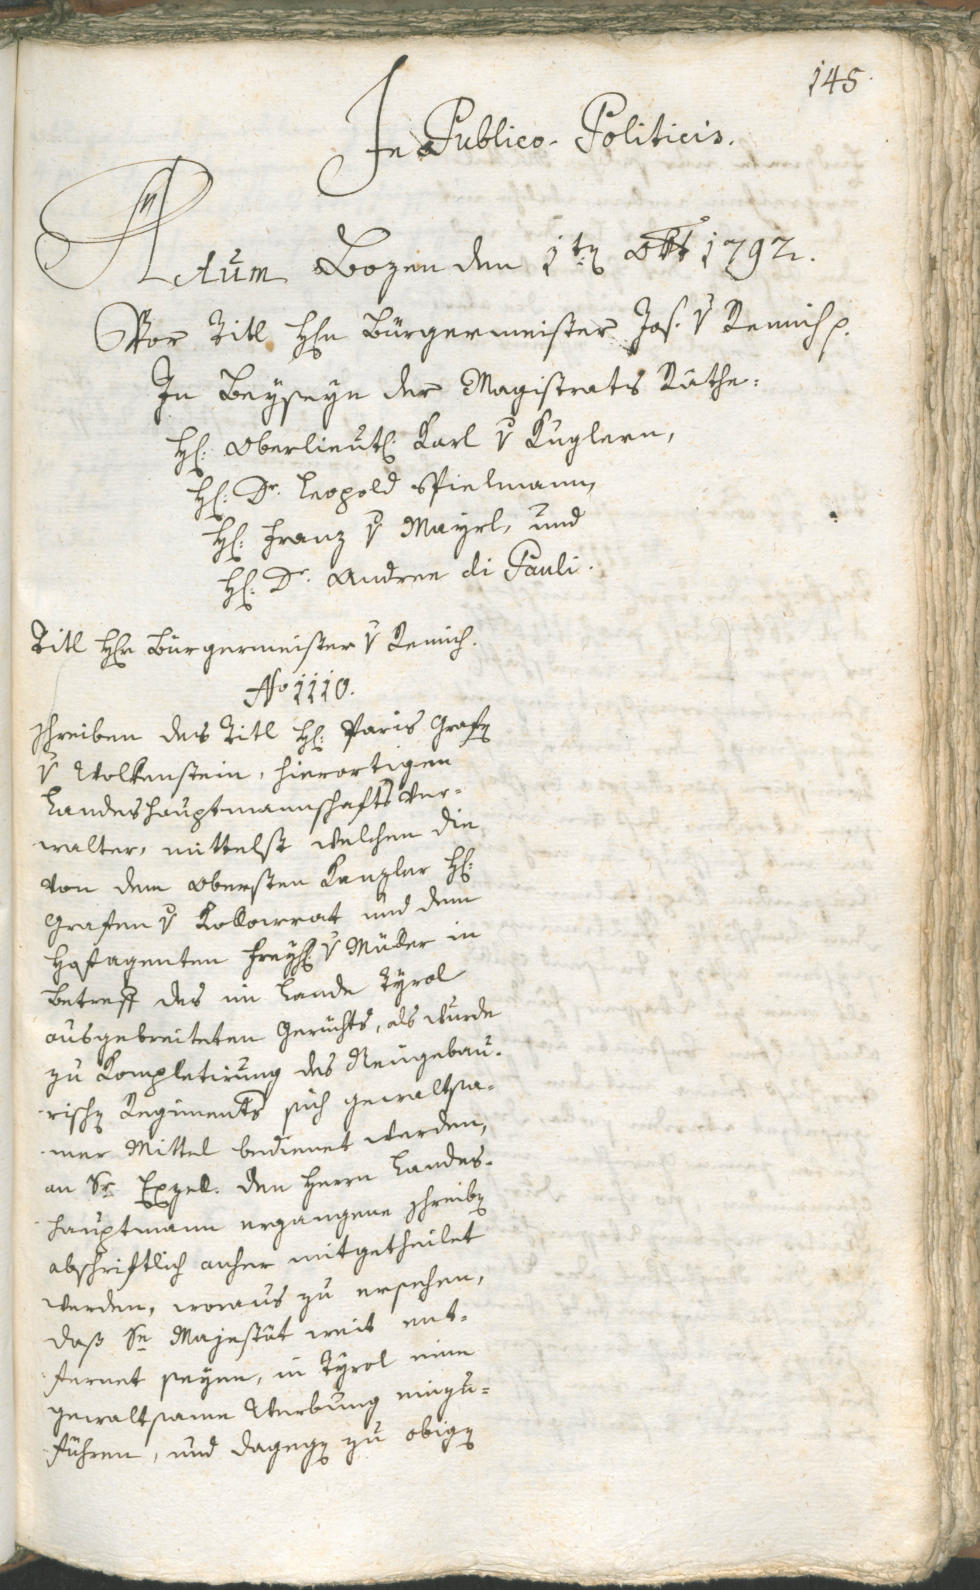 145.
In Publico-Politicis.
Actum Bozen den 1ten Obt 1792.
Vor Titl Hhn Bürgermeister Jos. v Remich p.
In Beyseyn der Magistrats Räthe:
Hl: Oberlieut: Karl v Kuglern,
Hl: Dr. Leopold Spielmann,
Hl: Franz v Mayrl, und
Hl: Dr. Andree di Pauli.
Titl Hhn Bürgermeister v Remich.
No 1110.
Schreiben des Titl Hl: Paris Grafen
v Wolkenstein, hierortigen
Landeshauptmannschafts Ver-
walter, mittelst welchem die
von dem obersten Kanzler Hl:
Grafen v Kollowrat und dem
Hofagenten Freyh: v Müller in
Betreff des im Lande Tyrol
ausgebreiteten Gerüchts, als wurde
zu Kompletirung des Neugebau-
rischen Regiments sich gewaltsa-
mer Mittel bedienet werden,
an Sr Exzell. den Herrn Landes-
hauptmann ergangene Schreiben
abschriftlich anher mitgetheilet
werden, woraus zu ersehen,
daß Se Majestät weit ent-
fernet seyen, in Tyrol eine
gewaltsame Werbung einzu-
führen, und dagegen zu obigen